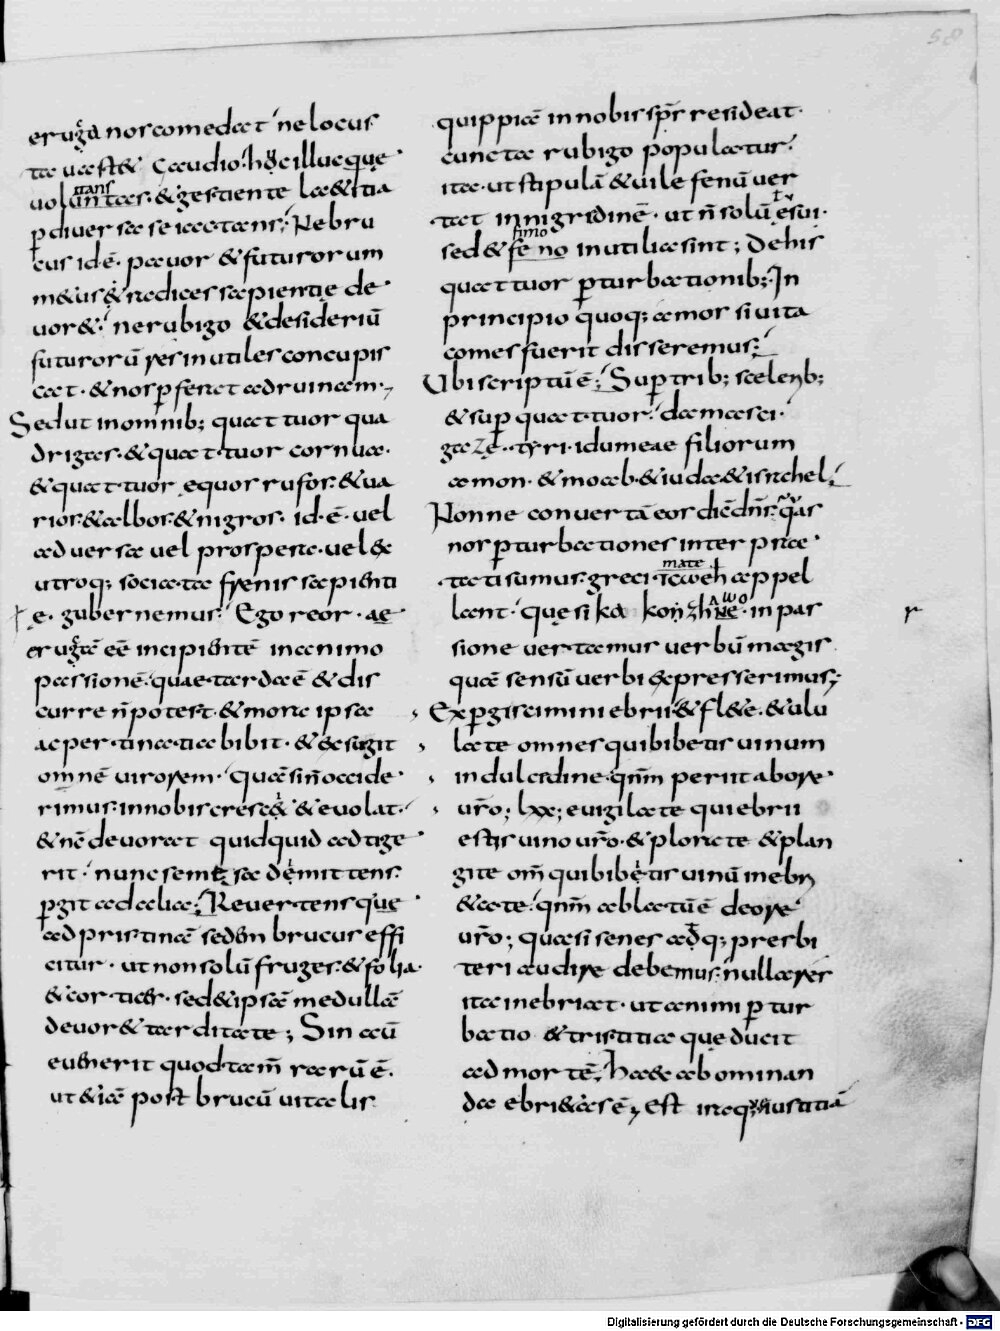 58
eruga nos comedat ne locus
ta uastet & gaudio hoc illucq: que
uoluntas & gestiente laetitia
p diuersa se iactans; Ne bru
cus id ē pauor & futurorum
metus & radices sapientie de
uoret ne rubigo & desideriū
futurorū res inutiles concupis
cat & nos pferat ad ruinam
Sed ut in omnib; quattuor qua
drigas & quattuor cornua
& quattuor equos rufos & ua
rios & albos & nigros id ē uel
aduersa uel prospera uel &
utroq; sociata frenis sapienti
e gubernemus Ego reor ae
erugā eē incipientē in animo
passionē quae tarda ē & dis
currere ñ potest & more ipsa
ac per tinea bibit & exsugit
omnē uirorem quā si ñ occide
rimus in nobis crescet & euolat
& nē deuorat quidquid adtige
rit nunc semesa demittens
pgit ad alia; Reuertensque
ad pristinā sedem brucus effi
citur ut non solū fruges & folia
& cortices sed & ipsā medullā
deuoret tarditate; Sin aū
euenerit quod tam̄ rarū ē
ut etiā post brucū uitalis
quippiā in nobis spr̄ resideat
cuncta rubigo populatur
ita ut stipulā & uile fenū uer
tat in nigridinē ut ñ solū esui
sed & feno fimo inutilia sint; De his
quattuor pturbationib; In
principio quoq; amos si uita
comes fuerit disseremus;
Ubi scriptū ē; Sup trib; scelerib;
& sup quattuor damasci
gaze tyri idumeae filiorum
amon & moab & iuda & israhel
Nonne conuertā eos dic̄ dn̄s quas
nos pturbationes interpra
tati sumus greci appel
lant que si in pas
sione uertamus uerbū magis
quā sensū uerbi expresserimus;
Expgiscimini ebrii & flete & ulu
late omnes qui bibetis uinum
in dulcidine qnm periit ab ore
uro; lxx; euigilate qui ebrii
estis uino uro & plorate & plan
gite om̄s qui bibetis uinū in ebri
etate qnm ablatū ē de ore
uro; quasi senes adq; presbi
teri audire debemus nulla res
ita inebriat ut animi ptur
batio & tristitia que ducit
ad mortē; haec abominan
da ebrietas ē, est itaq; iustitiā
Digitalisierung gefördert durch die Deutsche Forschungsgemeinschaft - DFG